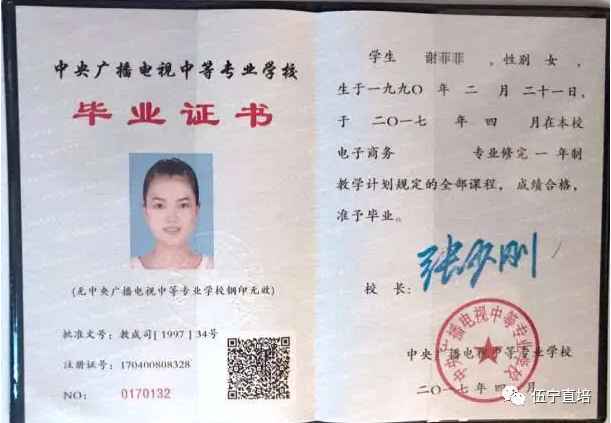 中央广播电视中等专业学校
毕业证书
(无中央广播电视中等专业学校钢印无效)
批准文号：教成司[1997]34号
注册证号：170400808328
NO： 0170132
学生 谢菲菲 ，性别 女 ，
生于一九九〇 年 二 月 二十一日，
于 二〇一七 年 四 月在本校
电子商务 专业修完 一 年制
教学计划规定的全部课程，成绩合格，
准予毕业。
校 长：
中央广播电视中等专业学校
二〇一七 年 四 月
中央广播电视中等专业学校
伍宁直培